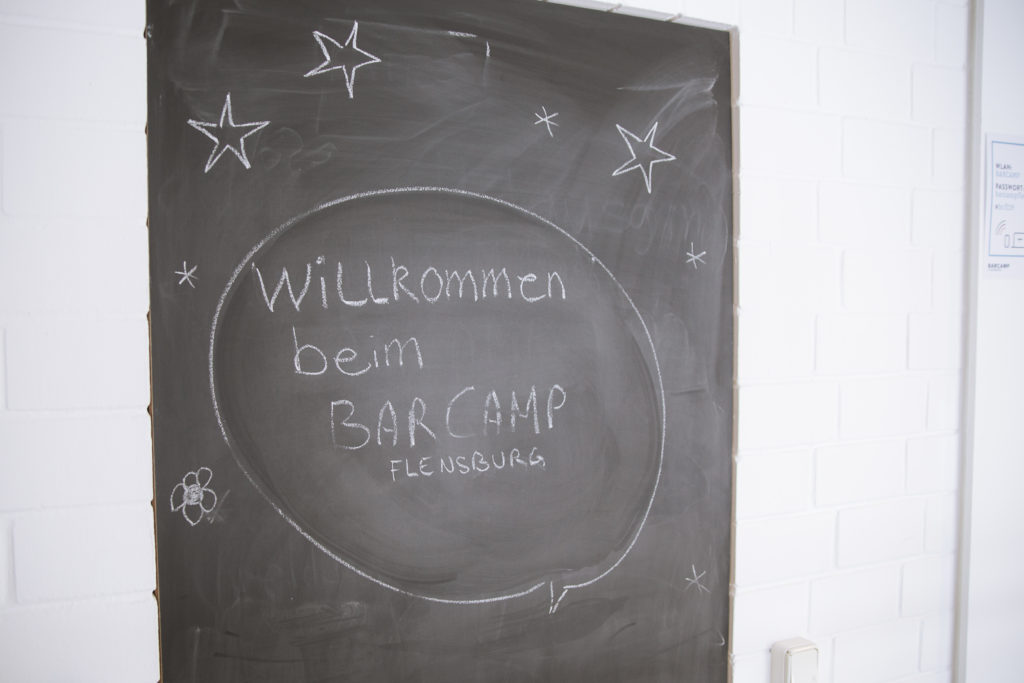 Willkommen
beim
BARCAMP
FLENSBURG
WLAN:
BARCAMP
PASSWORT:
BARCAMP